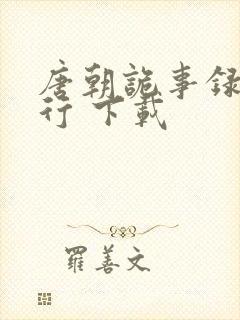 唐朝詭事录
行 下載
羅善文